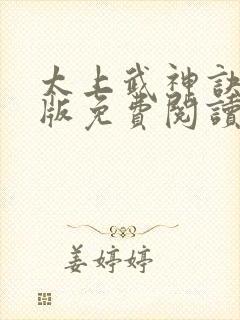 太上武神訣
版免費閱讀
姜婷婷